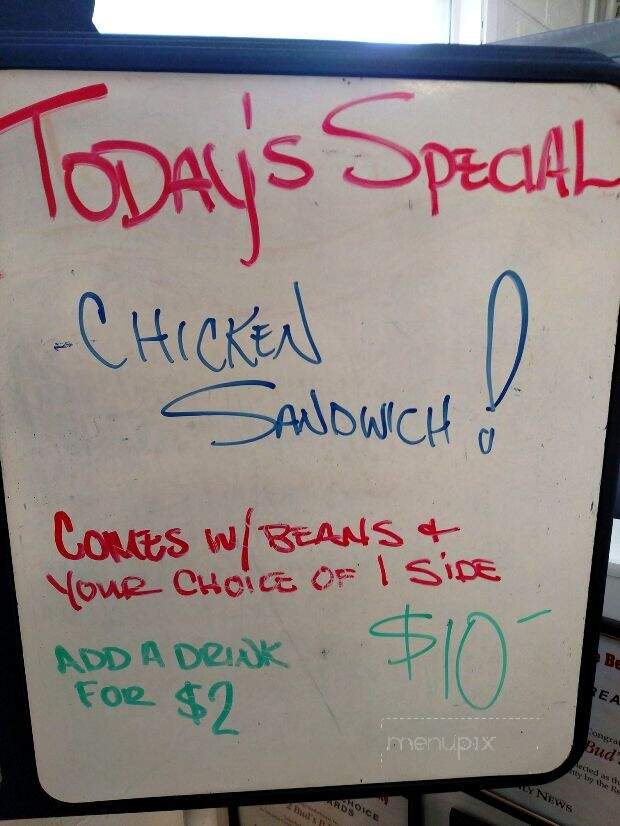 TODAY'S SPECIAL
- CHICKEN
SANDWICH!
COMES W/ BEANS &
YOUR CHOICE OF 1 SIDE
ADD A DRINK
FOR $2
$10-
menupix
Be
REA
Congrat
Bud's
ected as th
ty by the Re
LY NEWS
CHOICE
ARDS
Bud's B